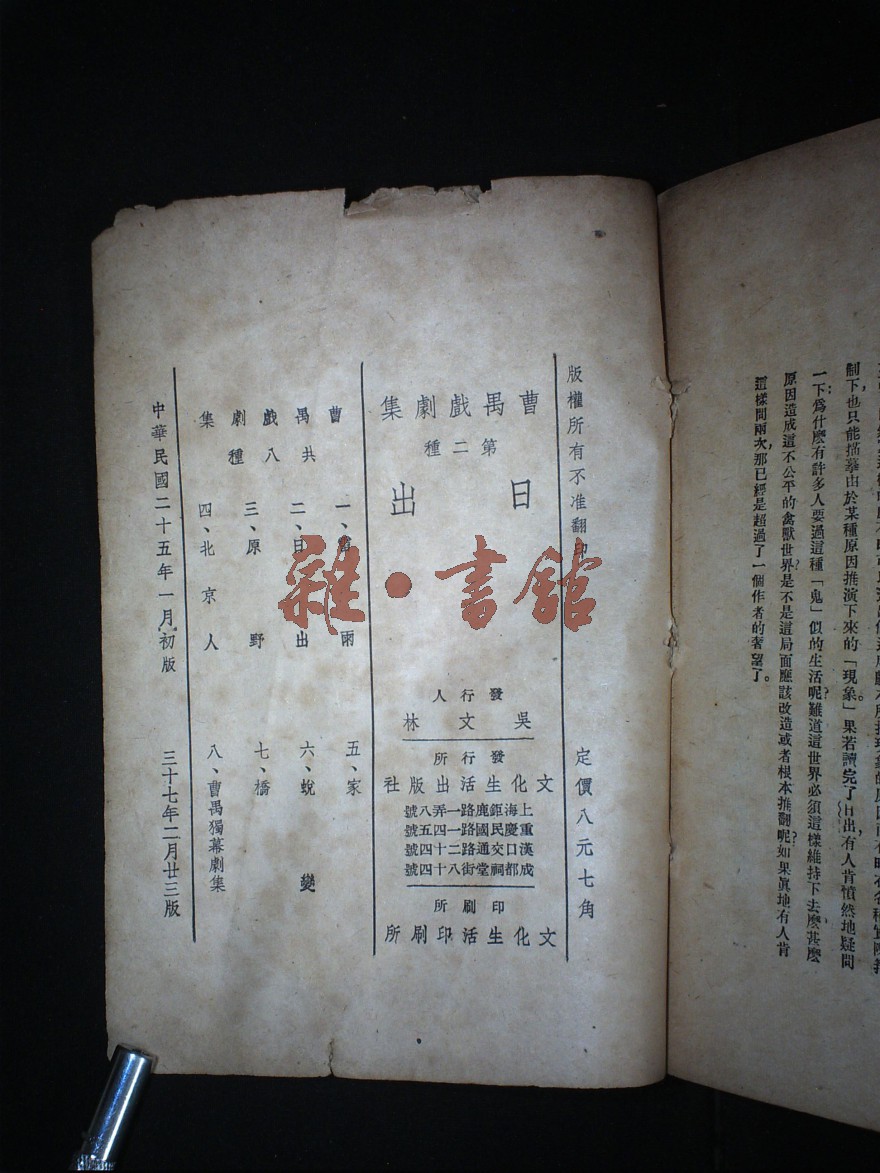 制下也只能描摹由於某種原因推演下來的「現象」。果若讀完了日出,有人肯憤然地疑問
一下:爲什麼有許多人要過這種「鬼」似的生活呢?難道這世界必須這樣維持下去麼?甚麼
原因造成這不公平的禽獸世界?是不是這局面應該改造或者根本推翻呢?如果眞地有人肯
這樣問兩次,那已經是超過了一個作者的奢望了。
版權所有不准翻印
定價八元七角
曹禺戲劇集
第二種
日出
發行人
吳文林
發行所
文化生活出版社
上海鉅鹿路一弄八號
重慶民國路一四五號
漢口交通路二十四號
成都祠堂街八十四號
印刷所
文化生活印刷所
曹禺戲劇集
共八種
一、雷雨
二、日出
三、原野
四、北京人
五、家
六、蛻變
七、橋
八、曹禺獨幕劇集
中華民國二十五年一月初版
三十七年二月廿三版
雜·書館